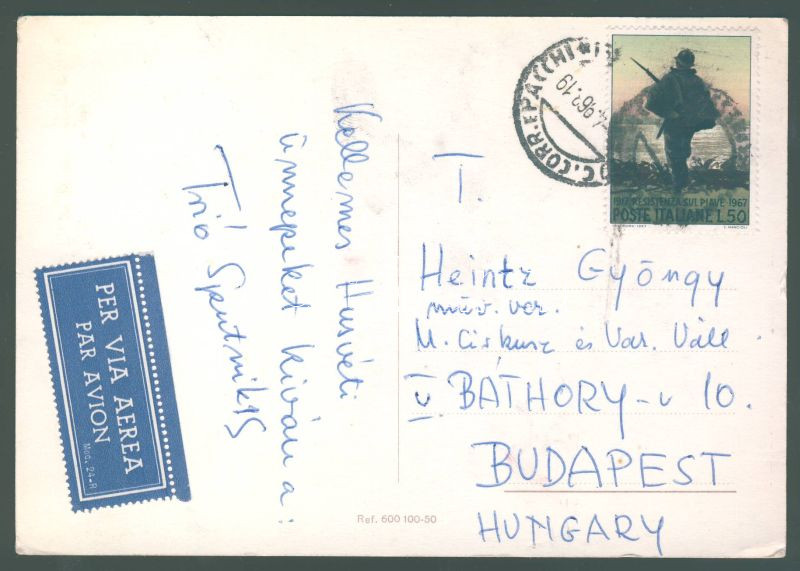 Kellemes Husvéti
ünnepeket kiván a:
Trió Sputniks
PER VIA AEREA
PAR AVION
Mod. 24-R
C. CORR. E PACCHI
1917 RESISTENZA SUL PIAVE 1967
POSTE ITALIANE L. 50
T.
Heintz Gyöngy
műv. vez.
M. Cirkusz és Var. Váll
V BÁTHORY-u 10.
BUDAPEST
HUNGARY
Ref. 600 100-50